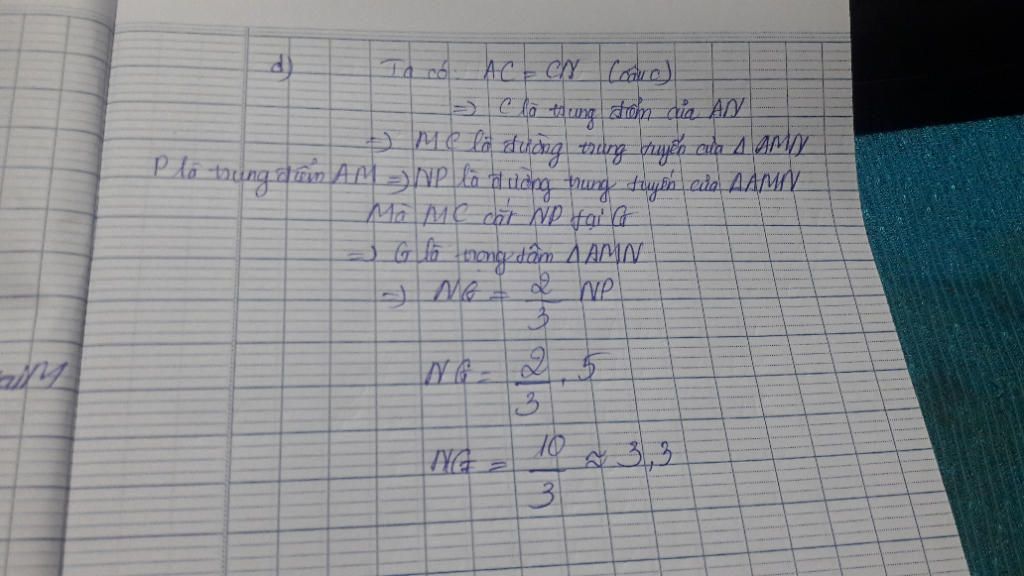 d) Ta có AC = CN (câu c)
=) C là trung điểm của AN
=) MC là đường trung tuyến của Δ AMN
P là trung điểm AM =) NP là đường trung tuyến của ΔAMN
Mà MC cắt NP tại G
=) G là trọng tâm ΔAMN
=) NG = 2/3 NP
NG = 2/3 . 5
NG = 10/3 ≈ 3,3